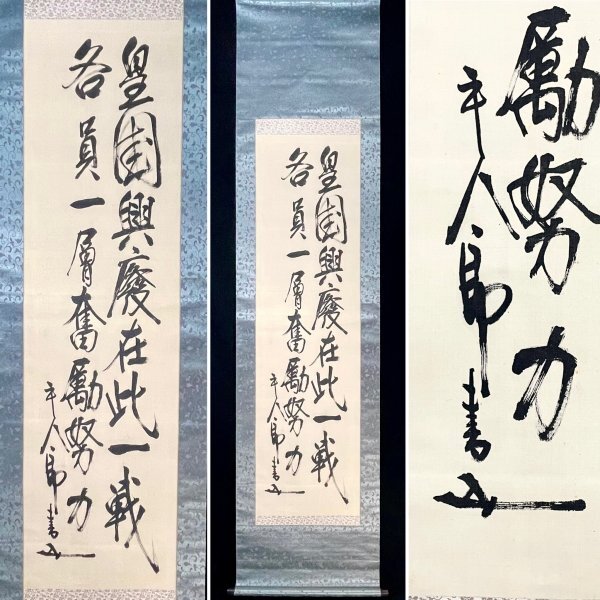 皇國興廢在此一戰
各員一層奮勵努力
平八郎書
皇國興廢在此一戰
各員一層奮勵努力
平八郎書
勵努力
平八郎書